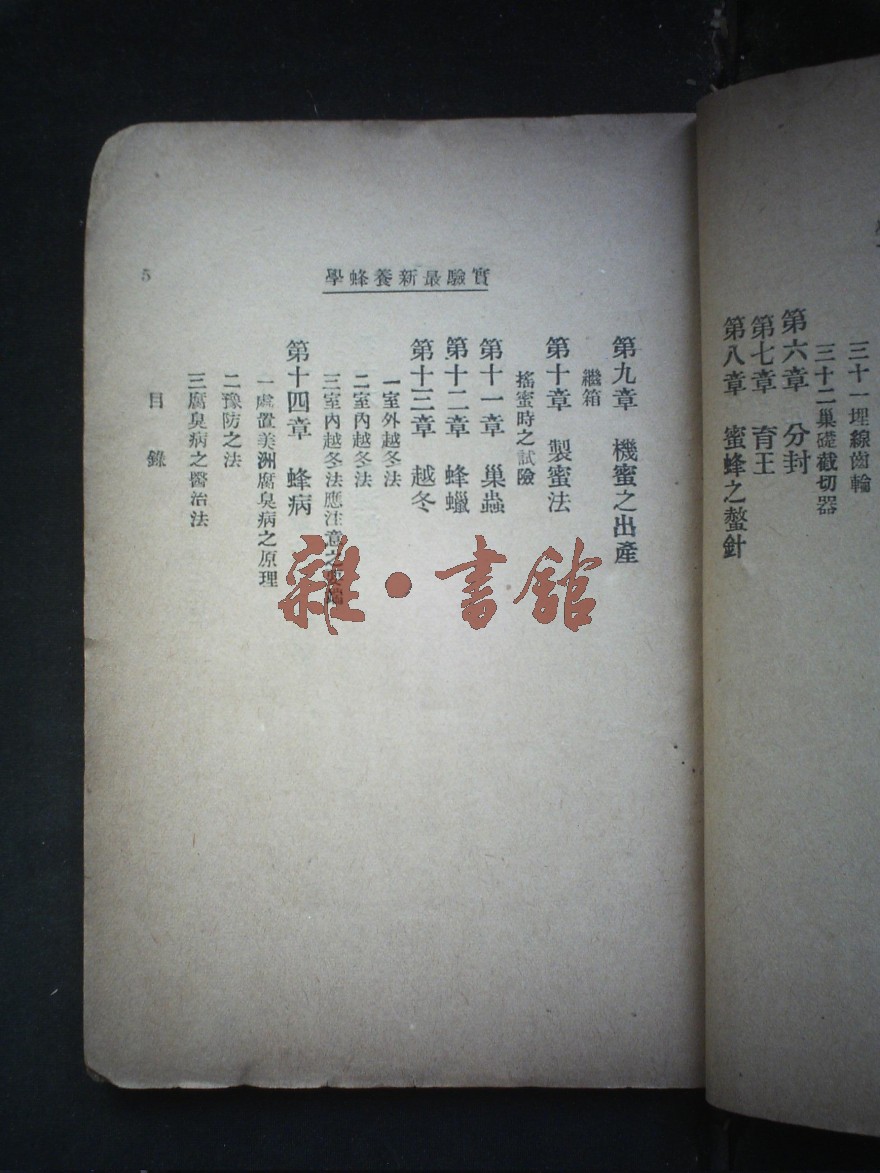 三十一埋線齒輪
三十二巢礎截切器
第六章　分封
第七章　育王
第八章　蜜蜂之螫針
實驗最新養蜂學
5
第九章　機蜜之出產
繼箱
第十章　製蜜法
搖蜜時之試險
第十一章　巢蟲
第十二章　蜂蠟
第十三章　越冬
一室外越冬法
二室內越冬法
三室內越冬法應注意之要端
第十四章　蜂病
一處置美洲腐臭病之原理
二豫防之法
三腐臭病之醫治法
目錄
雜·書館